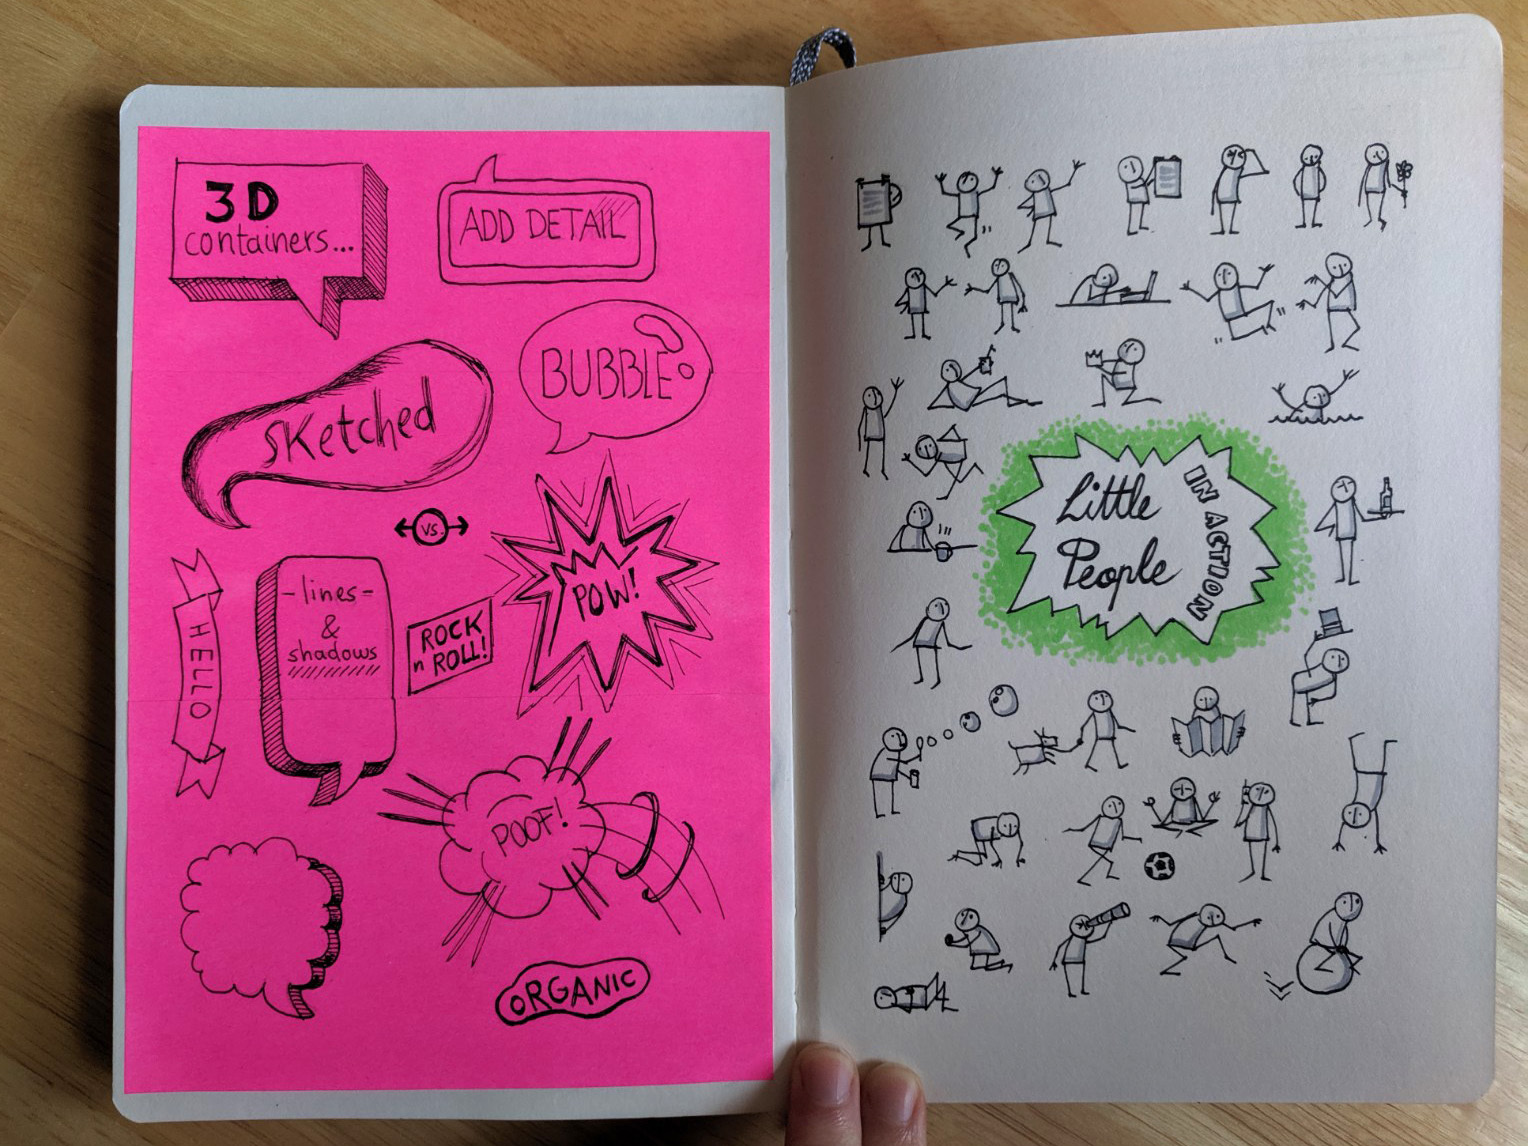 3D
containers...
ADD DETAIL
BUBBLE
SKetched
vs.
POW!
HELLO
- lines =
&
shadows
ROCK
n ROLL!
POOF!
ORGANIC
Little
People
IN ACTION